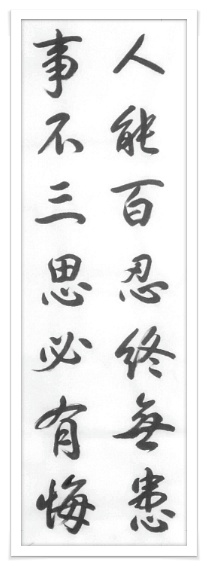 人能百忍終無患
事不三思必有悔